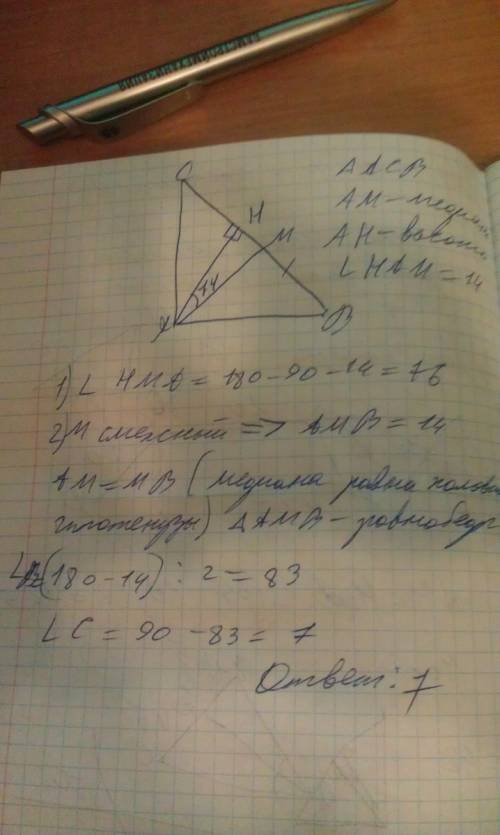 C
H
M
14
A
B
△ACB
AM - медиана
AH - высота
∠HAM = 14
1) ∠ HMA = 180 - 90 - 14 = 76
2) M смежный => AMB = 14
AM = MB ( медиана равна
гипотенузы) △AMB - равнобедр
(180 - 14) : 2 = 83
∠C = 90 - 83 = 7
Ответ: 7